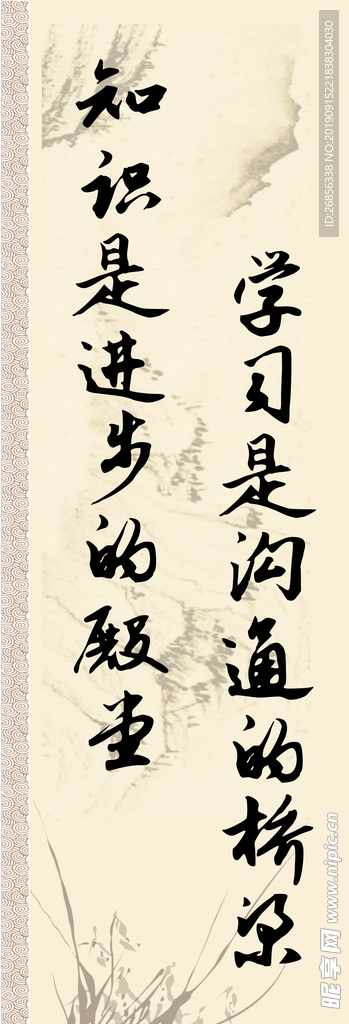 知识是进步的殿堂
学习是沟通的桥梁
ID:26856338 NO:20190915221838304030
昵享网 www.nipic.cn